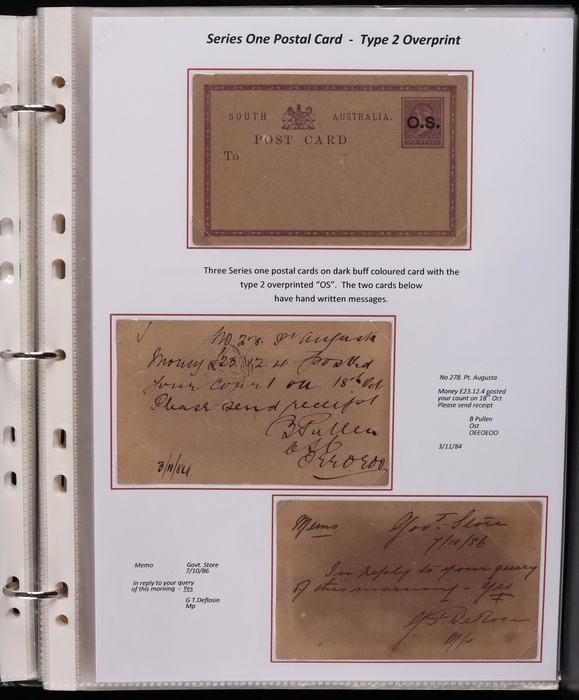 Series One Postal Card - Type 2 Overprint
SOUTH AUSTRALIA.
POST CARD
To
O.S.
ONE PENNY
Three Series one postal cards on dark buff coloured card with the
type 2 overprinted “OS”. The two cards below
have hand written messages.
No 278. Pt Augusta
Money £23.12.4 posted
your count on 18th Oct
Please send receipt
B Pullen
3/11/84
No 278. Pt. Augusta
Money £23.12.4 posted
your count on 18th Oct
Please send receipt
B Pullen
Ost
OEEOEOO
3/11/84
Memo Govt. Store
7/10/86
In reply to your query
of this morning - Yes
Memo Govt. Store
7/10/86
In reply to your query
of this morning - Yes
G T.Deflosin
Mp